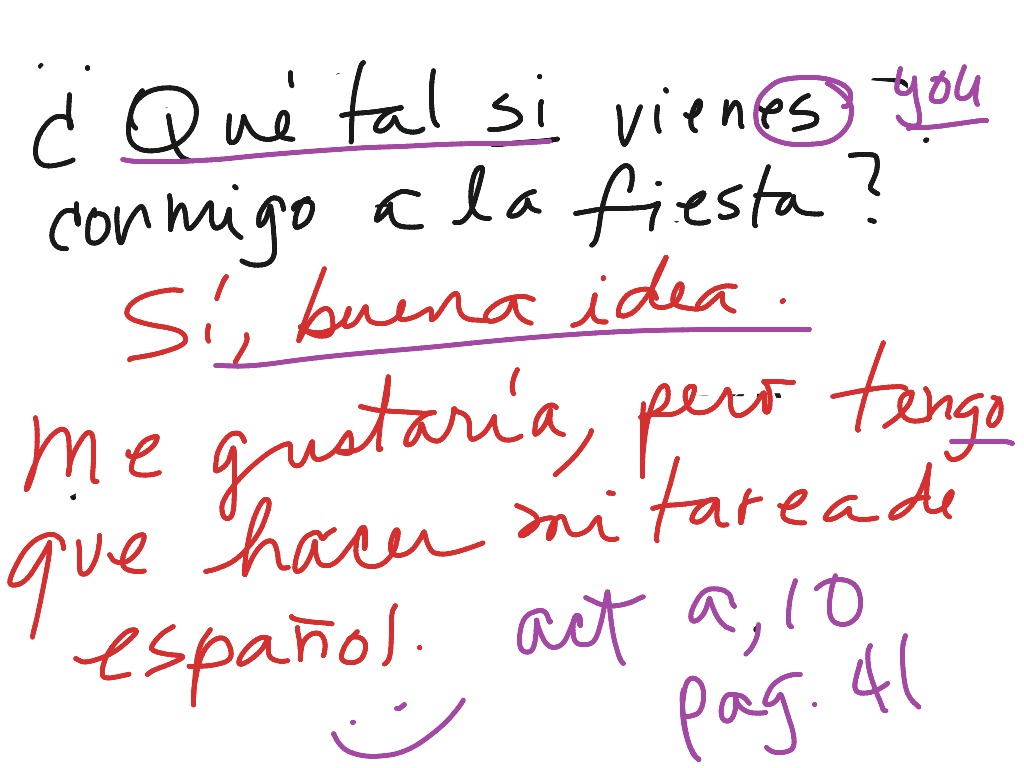 ¿Qué tal si vienes you
conmigo a la fiesta?
Sí, buena idea.
Me gustaría, pero tengo
que hacer mi tarea de
español. act a, 10
pag. 41